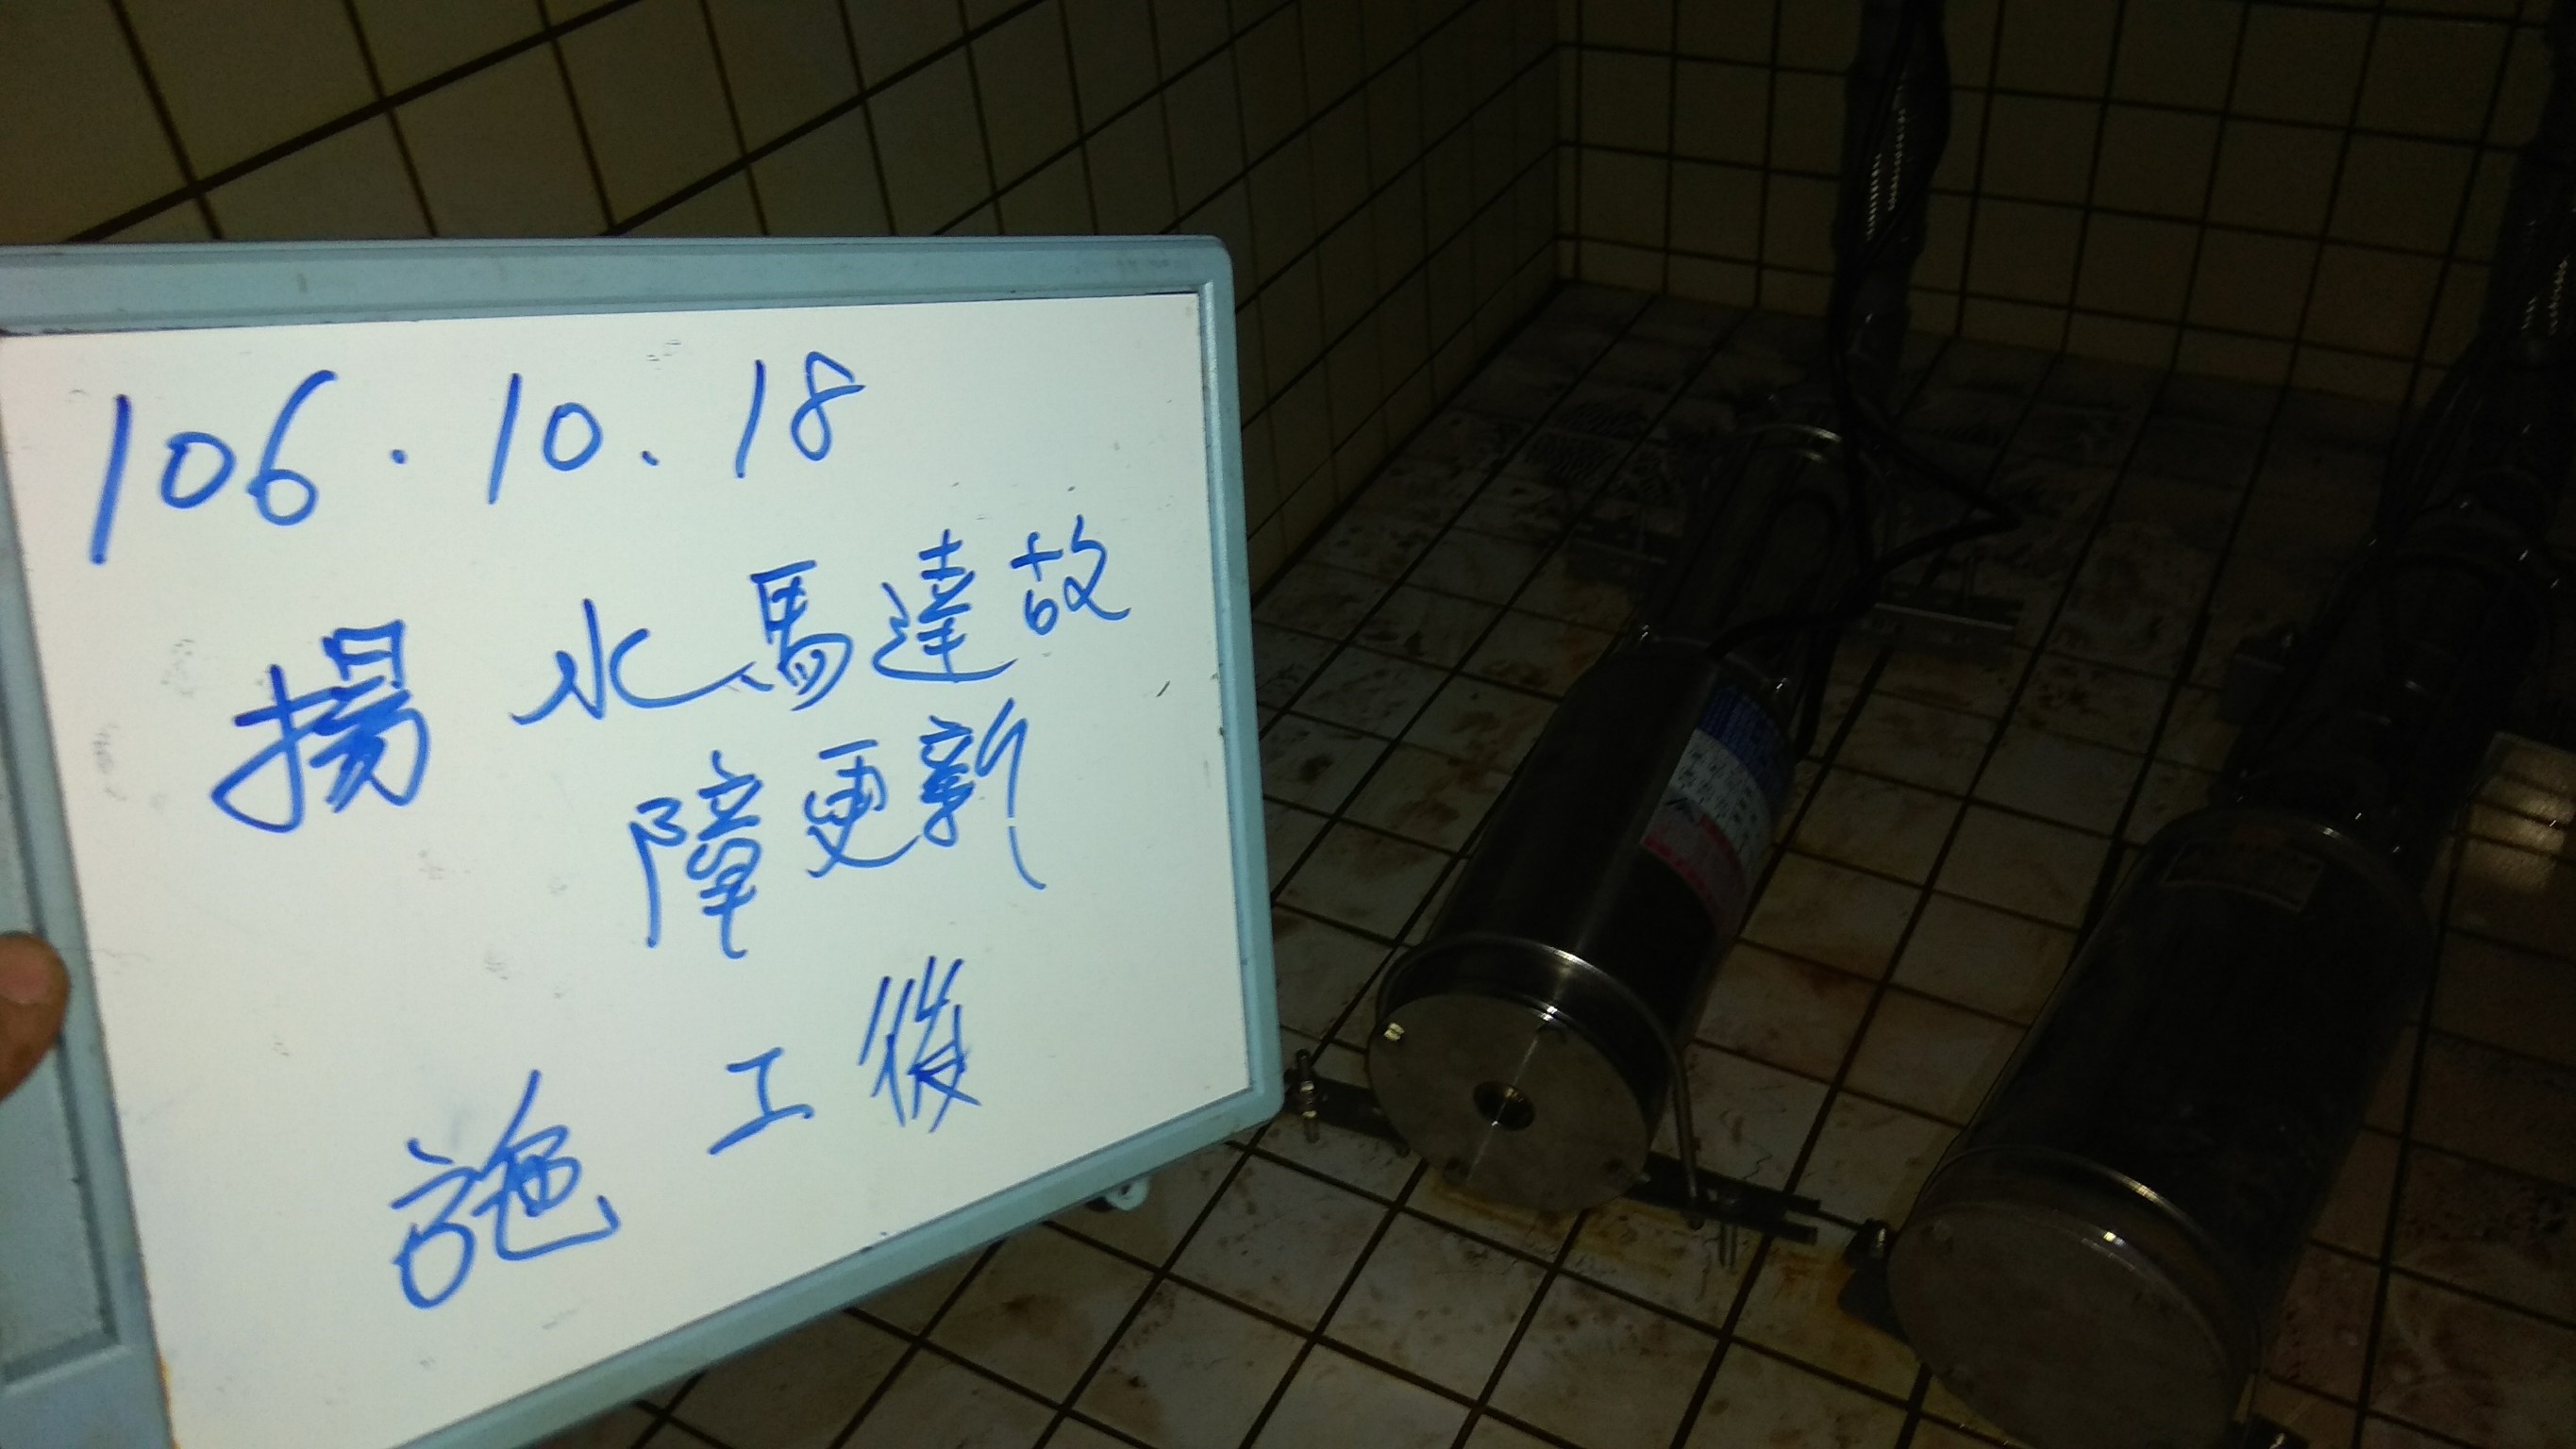 106.10.18
揚水馬達故
障更新
施工後